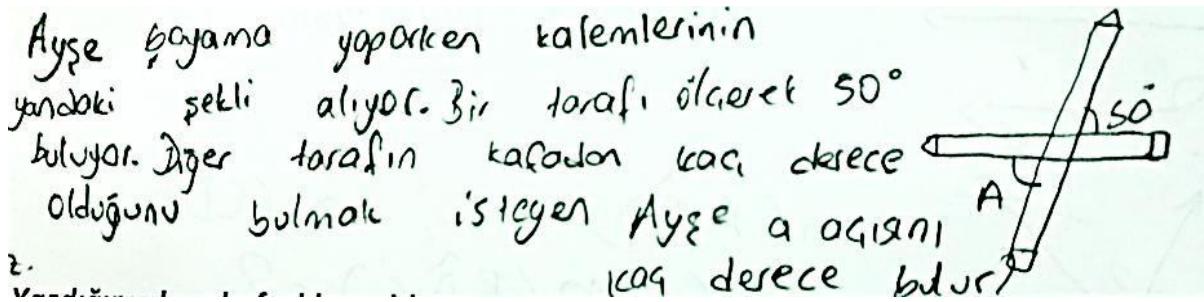 Ayşe boyama yaparken kalemlerinin
yandaki şekli alıyor. Bir tarafı ölçerek 50°
buluyor. Diğer tarafın kafadan kaç derece
olduğunu bulmak isteyen Ayşe a açısını
kaç derece bulur?
50°
A
z.